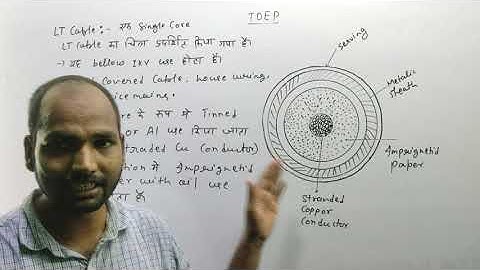 TDEP
LT Cable:- यह Single Core
LT cable का चित्र प्रदर्शित किया गया है।
→ यह bellow 1KV use होता है।
Covered Cable, house wiring,
ice mains.
के रूप में Tinned
or Al use किया जाता
traded Cu Conductor)
tion में Impregnetid
er with oil use
serving
Metalic
sheath
Impregnetid
paper
Stranded
Coppor
Conductor